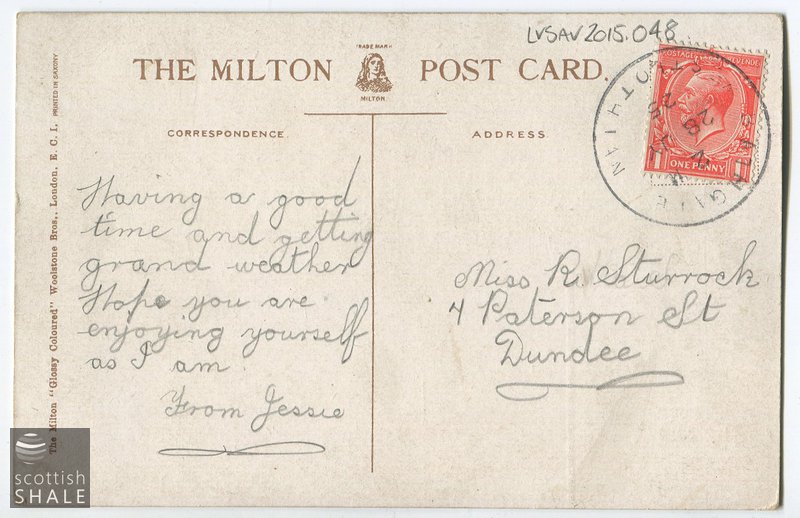 LVSAV2015.048
TRADE MARK
THE MILTON POST CARD.
MILTON.
CORRESPONDENCE.
ADDRESS.
POSTAGE REVENUE
ONE PENNY
1 1
BATHGATE
28
25
Having a good
time and getting
grand weather
Hope you are
enjoying yourself
as I am
From Jessie
Miss R. Sturrock
4 Paterson St
Dundee
The Milton "Glossy Coloured" Woolstone Bros., London, E. C. 1. PRINTED IN SAXONY
scottish
SHALE